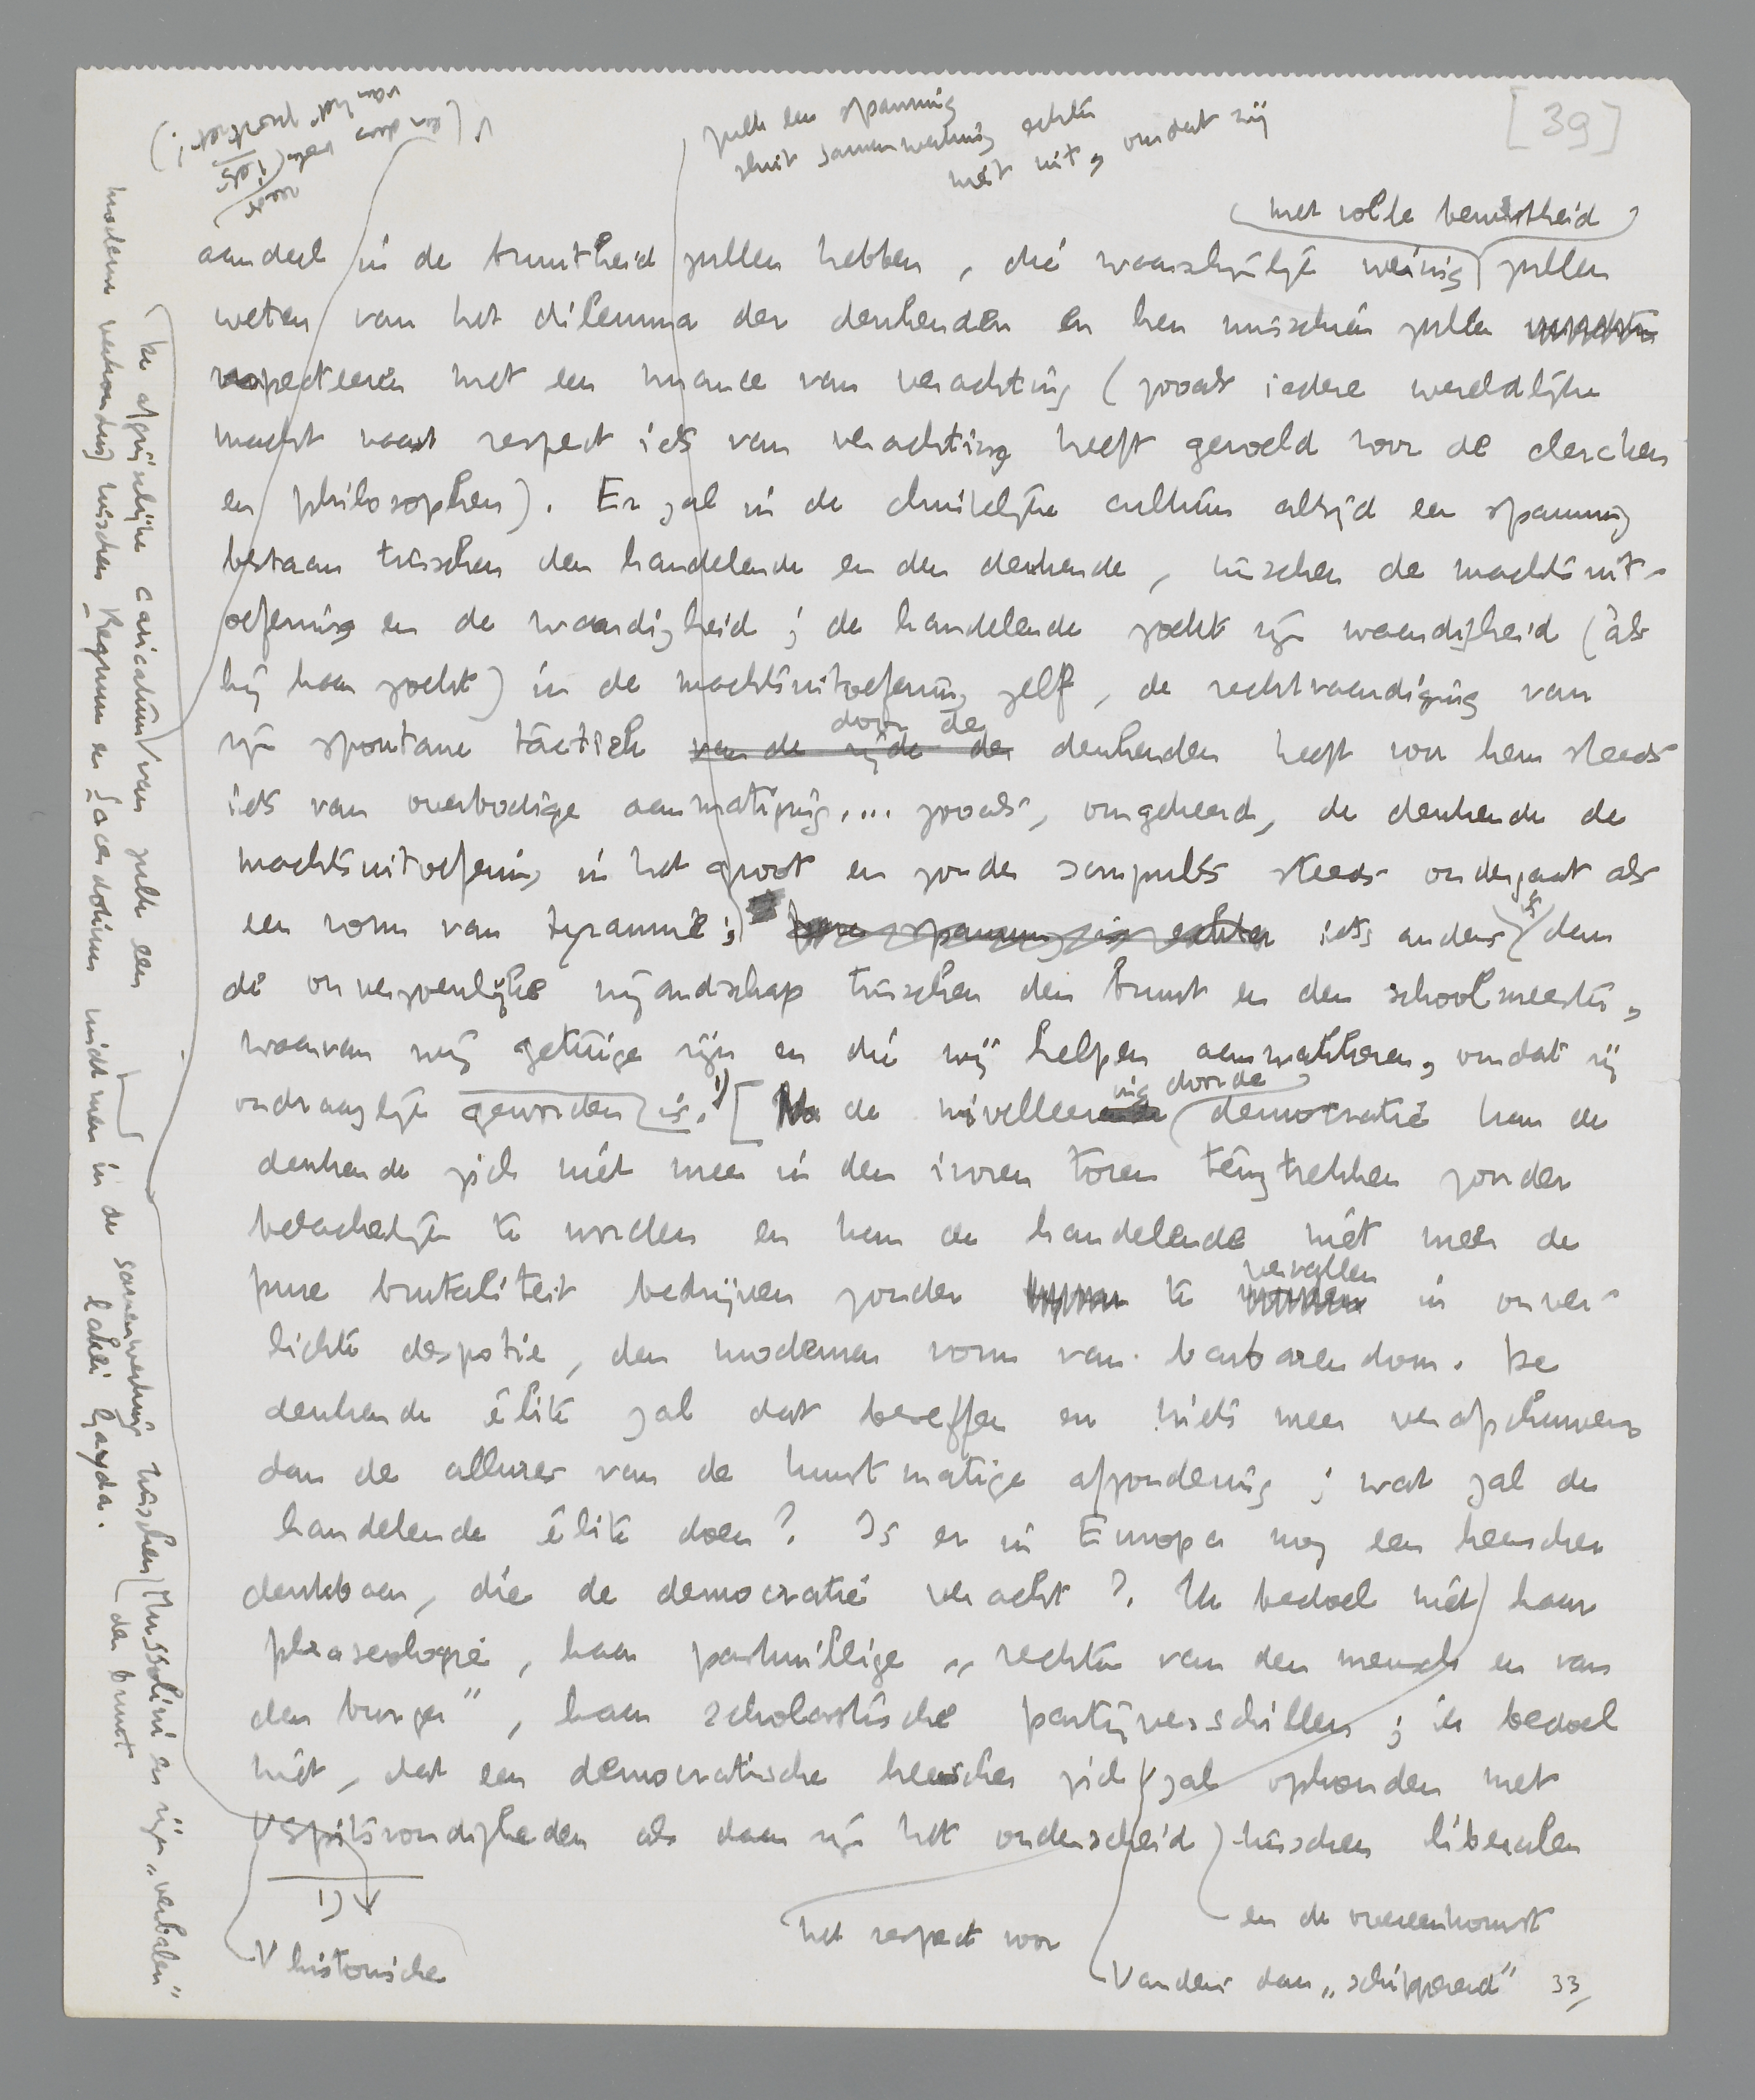 [39]
zulk een spanning
sluit samenwerking echter
niet uit, omdat zij
(en door
van het
voor
iets
met volle bewustheid
aandeel in de bruutheid zullen hebben, die waarschijnlijk weinig zullen
weten van het dilemma der denkenden en hen misschien zullen
respecteeren met een nuance van verachting (zooals iedere wereldlijke
macht naast respect iets van verachting heeft gevoeld voor de clercken
en philosophen). Er zal in de christelijke cultuur altijd een spanning
bestaan tusschen den handelende en den denkende, tusschen de machtsuit-
oefening en de waardigheid; de handelende zoekt zijn waardigheid (als
hij haar zoekt) in de machtsuitoefening zelf, de rechtvaardiging van
door de
zijn spontane tactiek van de zijde der denkenden heeft voor hem steeds
iets van overbodige aanmatiging.... zooals, omgekeerd, de denkende de
machtsuitoefening in het groot en zonder scrupules steeds ondergaat als
een vorm van tyrannie; deze spanning is echter iets anders is dan
de onverzoenlijke vijandschap tusschen den bruut en den schoolmeester,
waarvan wij getuige zijn en die wij helpen aanwakkeren, omdat zij
ondraaglijk geworden is. 1) [Na de nivelleering door de democratie kan de
denkende zich niet meer in den ivoren toren terugtrekken zonder
belachelijk te worden en kan de handelende niet meer de
pure brutaliteit bedrijven zonder te vervallen in onver-
lichte despotie, den modernen vorm van barbarendom. De
denkende élite zal dat beseffen en niets meer verafschuwen
dan de allures van de kunstmatige afzondering; wat zal de
handelende élite doen? Is er in Europa nog een heerscher
denkbaar, die de democratie veracht? Ik bedoel niet haar
phraseologie, haar „rechten van den mensch en van
den burger", haar scholastische partijverschillen; ik bedoel
niet, dat een democratische heerscher zich zal ophouden met
V spitsvondigheden als daar zijn het onderscheid tusschen liberalen
1)
V historische
het respect voor
en de overeenkomst
V anders dan „schipperend" 33/
De afgrijselijke caricatuur van zulk een
moderne verhouding tusschen Regnum en Sacerdotium vindt men in de samenwerking tusschen Mussolini en zijn „verbalen"
den bruut
lakei Gayda.